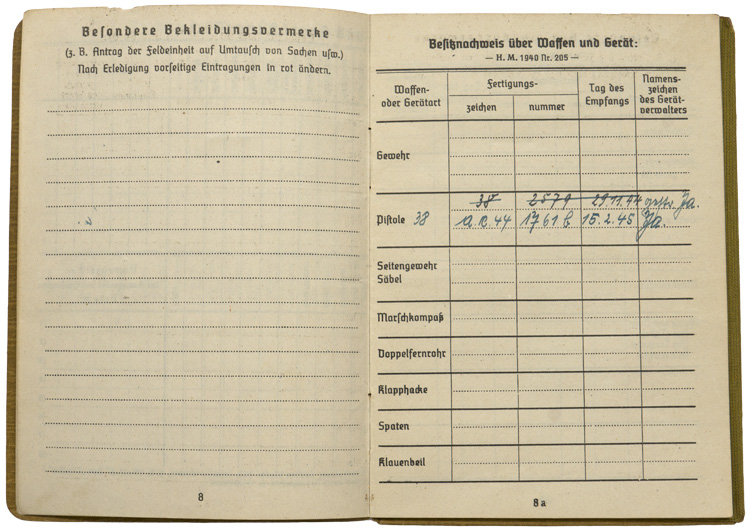 Besondere Bekleidungsvermerke
(z. B. Antrag der Feldeinheit auf Umtausch von Sachen usw.)
Nach Erledigung vorseitige Eintragungen in rot ändern.
8
Besitznachweis über Waffen und Gerät:
— H. M. 1940 Nr. 205 —
Waffen- oder Gerätart
Fertigungs-
zeichen
nummer
Tag des Empfangs
Namens-
zeichen
des Gerät-
verwalters
Gewehr
38 2579 29.11.44 gestr. Ja.
Pistole 38 a.c. 44 1761 b 15.2.45 Ja.
Seitengewehr
Säbel
Marschkompaß
Doppelfernrohr
Klapphacke
Spaten
Klauenbeil
8a